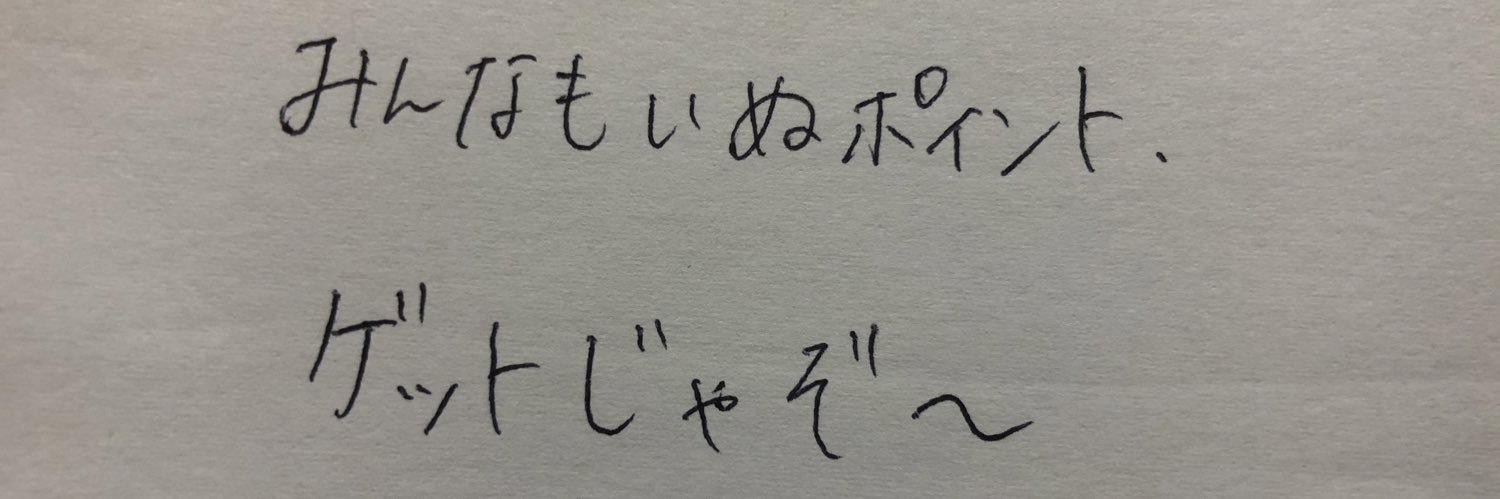 みんなもいぬポイント、
ゲットじゃぞ〜